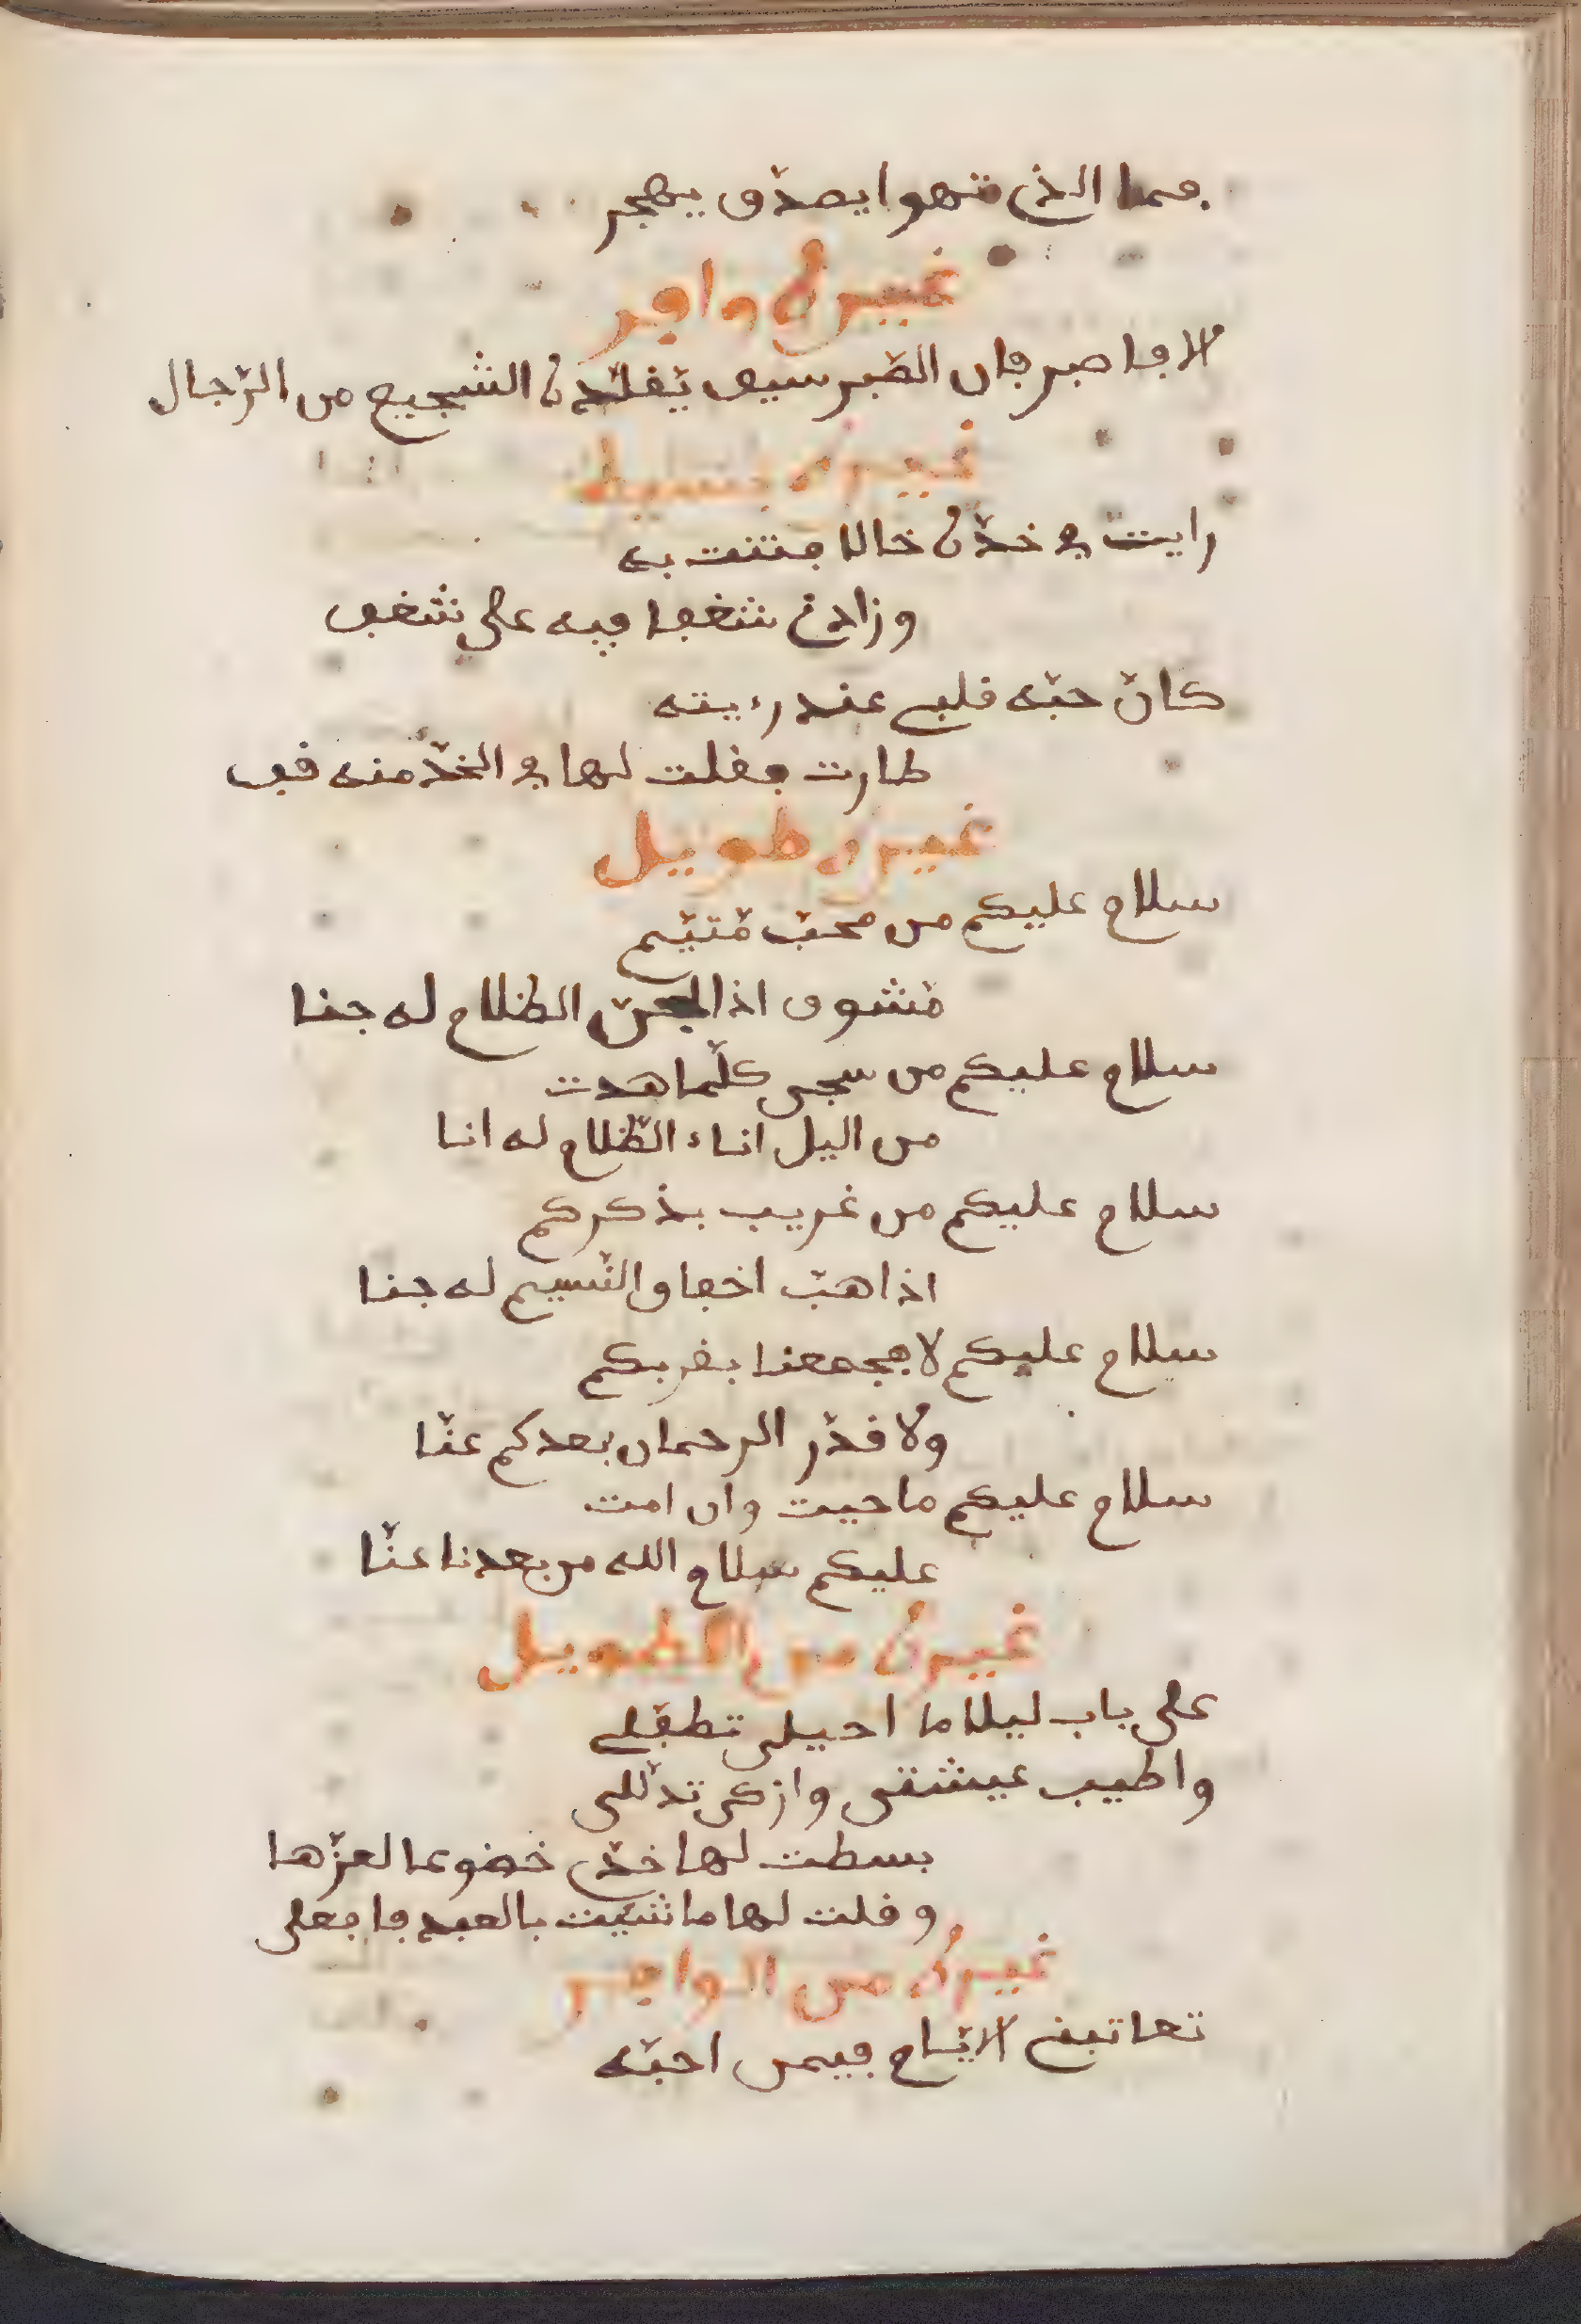 فما الذي تهوا يصدّق يهجر
غيره وافر
الا فاصبر فان الصّبر سيف يقلّده الشجيع من الرّجال
غيره بسيط
رايت في خدّه خالا فتنت به
وزادني شغفا فيه على شغف
كانّ حبّه قلبي عند رءيته
طارت فقلت لها في الخدّ منه قف
غيره طويل
سلام عليكم من محبّ متيّم
مشوق اذا الجنّ الظلام له جنا
سلام عليكم من سجى كلّما هدت
من اليل اناء الظّلام له انا
سلام عليكم من غريب بذكركم
اذا هبّ اخفاق النّسيم له جنا
سلام عليكم لا فجمعنا بقربكم
ولا قدّر الرحمان بعدكم عنّا
سلام عليكم ما حييت وان امت
عليكم سلام الله من بعدنا عنّا
غيره من الطويل
على باب ليلا ما احيلى تطفّلي
واطيب عيشتى وازكى تذلّلى
بسطت لها خدّي خضوعا لعزّها
وقلت لها ما شيّت بالعبد فافعلى
غيره من الوافر
تعاتبني الايّام فيمن احبّه